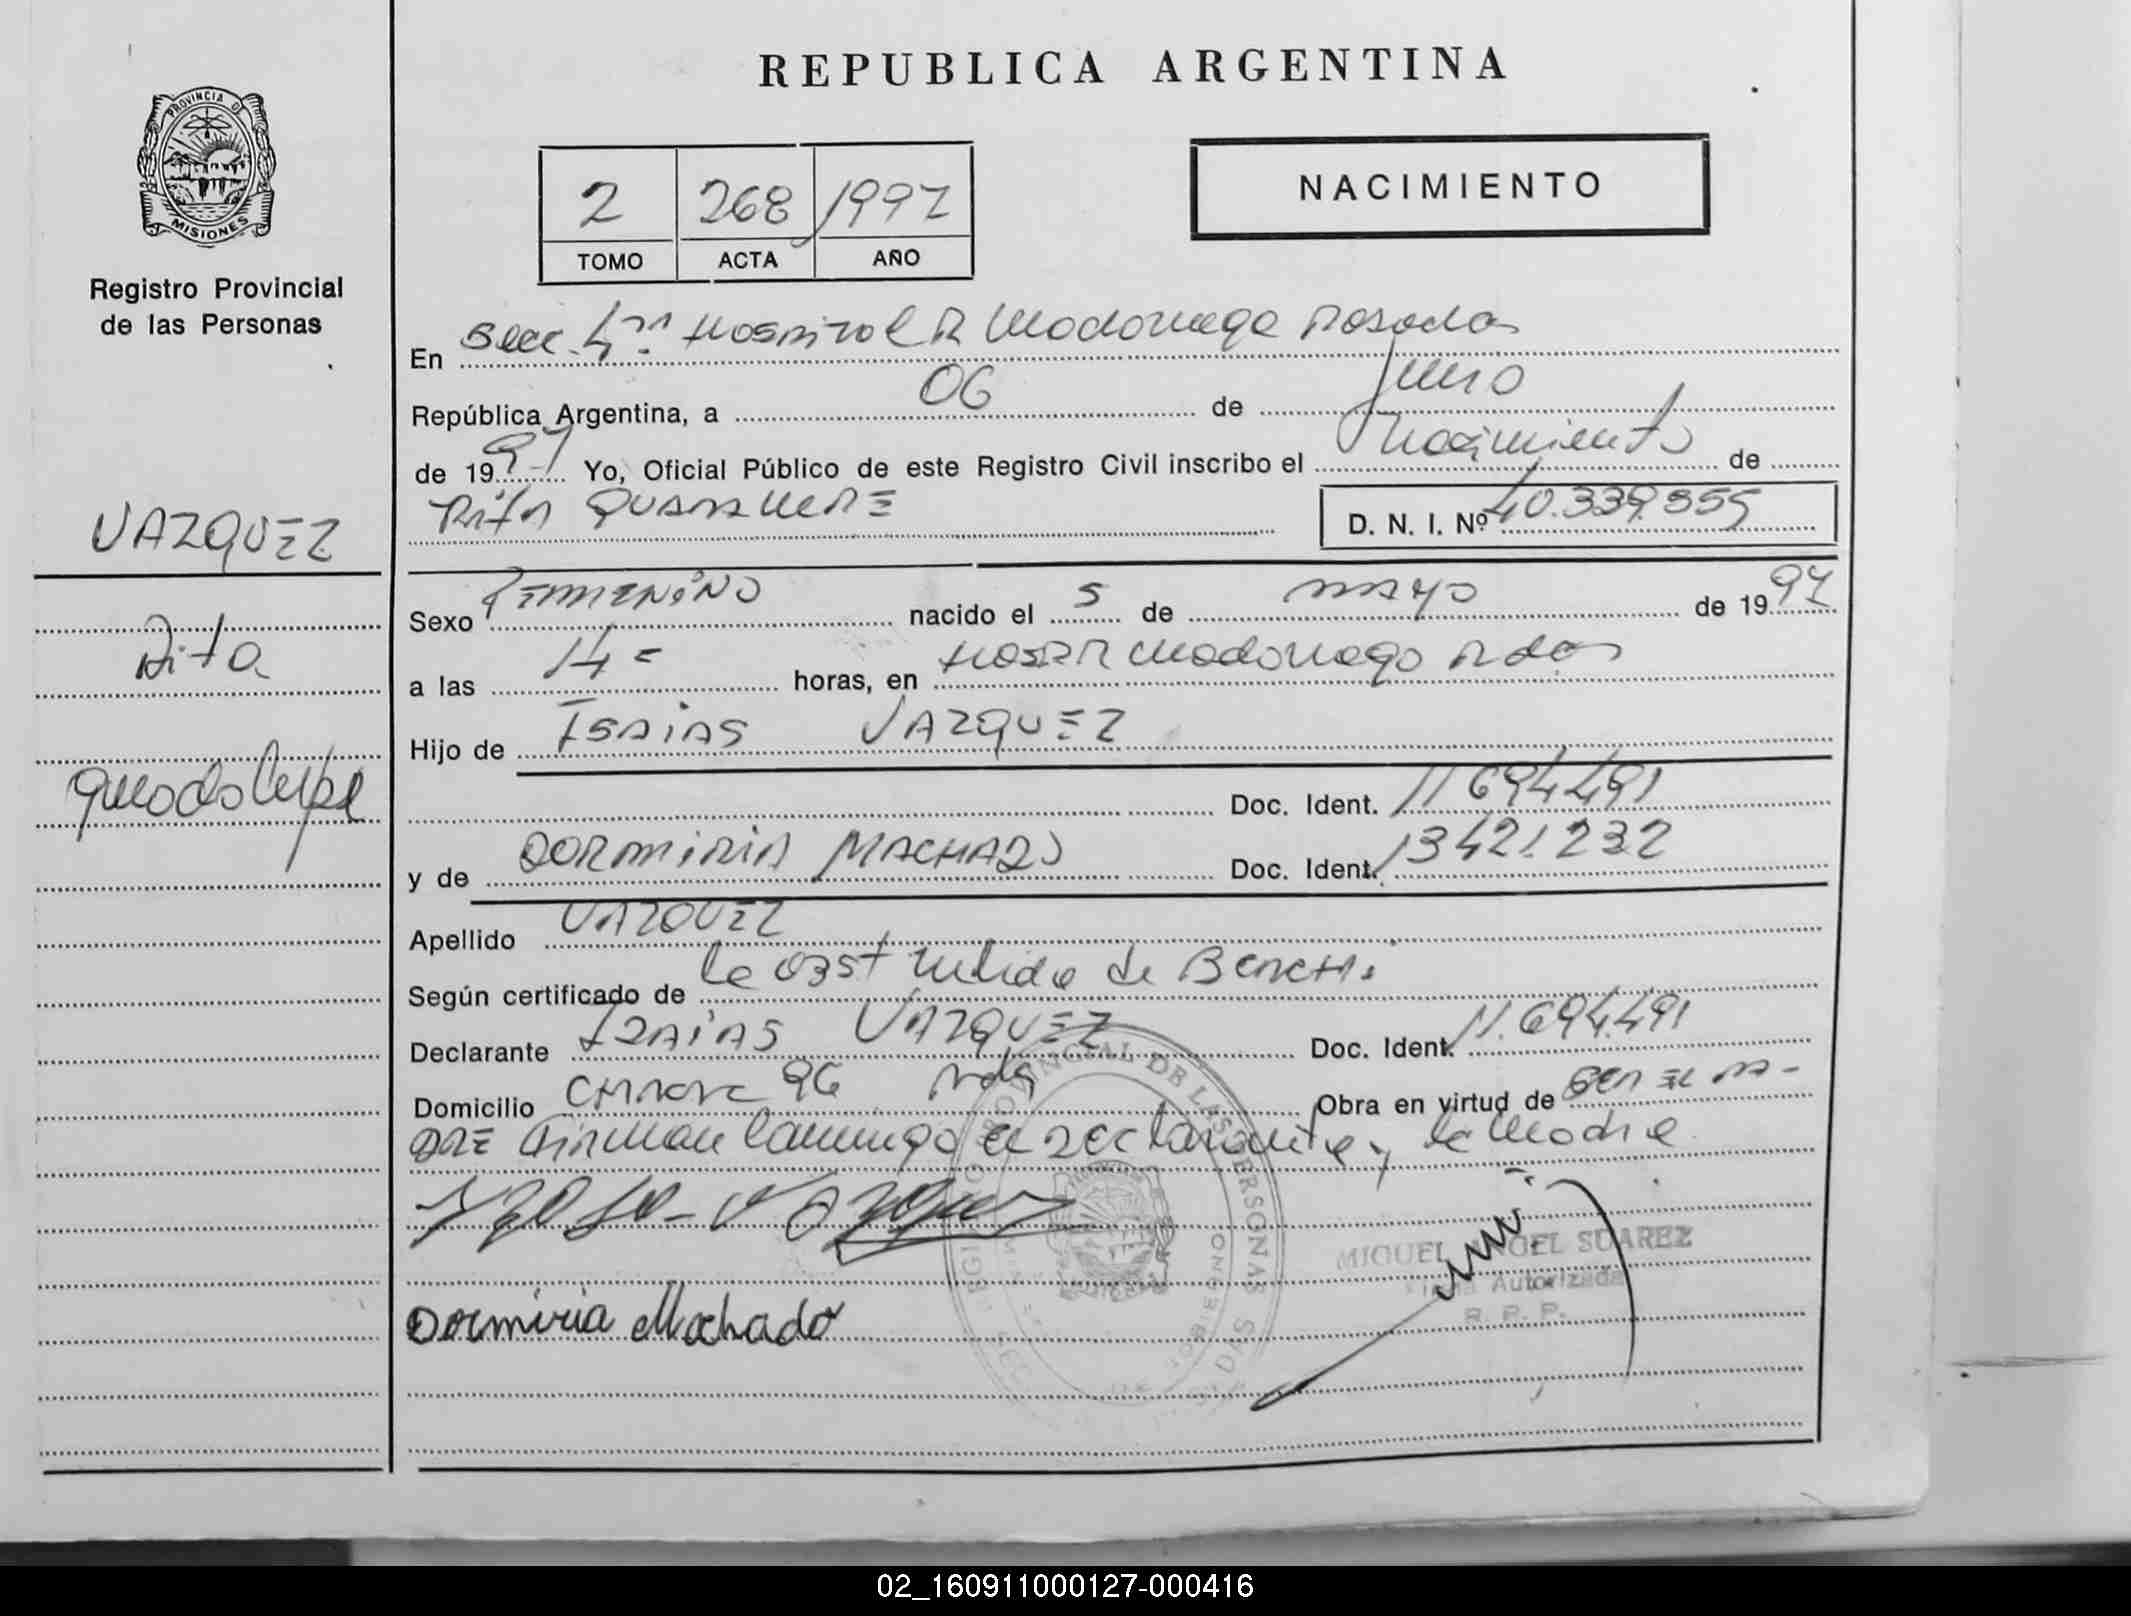 REPUBLICA ARGENTINA
PROVINCIA DE
MISIONES
Registro Provincial
de las Personas
2 268 1997
TOMO ACTA AÑO
NACIMIENTO
En Secc. 4ta Hospital R Madariaga Posadas
República Argentina, a 06 de Junio
de 1997 Yo, Oficial Público de este Registro Civil inscribo el Nacimiento de
Rita D. N. I. Nº 40.339.355
VAZQUEZ
Rita
Sexo FEMENINO nacido el 5 de mayo de 1997
a las 14 = horas, en Hosp R Madariaga Pdas
Hijo de ISAIAS VAZQUEZ
Doc. Ident. 11 694491
y de DORMIRIA MACHADO Doc. Ident. 13421.232
Apellido VAZQUEZ
Según certificado de la Obst de
Declarante IZAIAS VAZQUEZ Doc. Ident. 11.694.491
Domicilio 96 Pdas Obra en virtud de SER EL PA-
DRE Firman conmigo el declarante y la Madre
Dormiria Machado
REGISTRO PROVINCIAL DE LAS PERSONAS
GOBIERNO
MIGUEL ANGEL SUAREZ
Firma Autorizada
R. P. P.
02_160911000127-000416